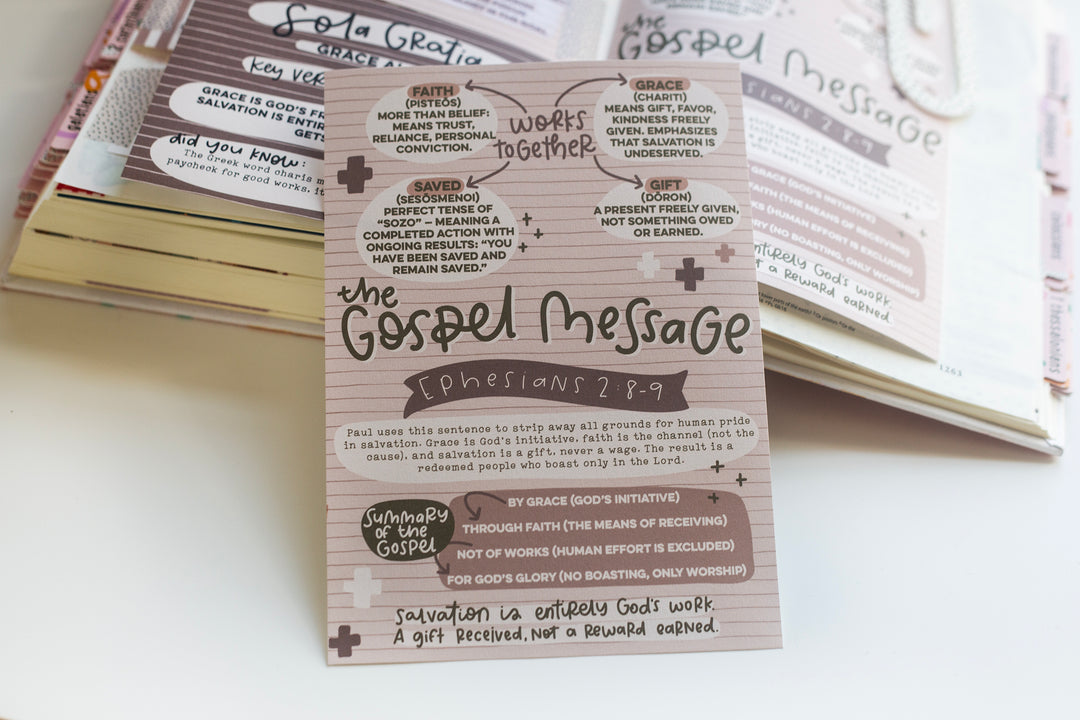 FAITH
(PISTEŌS)
MORE THAN BELIEF:
MEANS TRUST,
RELIANCE, PERSONAL
CONVICTION.
works
together
GRACE
(CHARITI)
MEANS GIFT, FAVOR,
KINDNESS FREELY
GIVEN. EMPHASIZES
THAT SALVATION IS
UNDESERVED.
SAVED
(SESŌSMENOI)
PERFECT TENSE OF
"SOZO" – MEANING A
COMPLETED ACTION WITH
ONGOING RESULTS: "YOU
HAVE BEEN SAVED AND
REMAIN SAVED."
GIFT
(DŌRON)
A PRESENT FREELY GIVEN,
NOT SOMETHING OWED
OR EARNED.
the
Gospel Message
Ephesians 2:8-9
Paul uses this sentence to strip away all grounds for human pride
in salvation. Grace is God's initiative, faith is the channel (not the
cause), and salvation is a gift, never a wage. The result is a
redeemed people who boast only in the Lord.
Summary
of the
Gospel
BY GRACE (GOD'S INITIATIVE)
THROUGH FAITH (THE MEANS OF RECEIVING)
NOT OF WORKS (HUMAN EFFORT IS EXCLUDED)
FOR GOD'S GLORY (NO BOASTING, ONLY WORSHIP)
Salvation is entirely God's work.
A gift Received, Not a Reward earned.
Sola Gratia
GRACE
key
GRACE IS GOD'S
SALVATION IS
did you know:
The Greek word charis
paycheck for good works,
the
Gospel Message
2:8-9
GRACE (GOD'S INITIATIVE)
FAITH (THE MEANS OF RECEIVING)
(HUMAN EFFORT IS EXCLUDED)
(NO BOASTING, ONLY WORSHIP)
entirely God's work.
a Reward earned
1263
1 Thessalonians